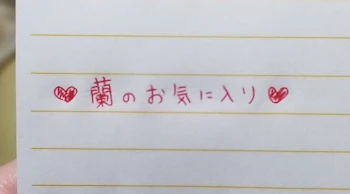 ♥蘭のお気に入り♥